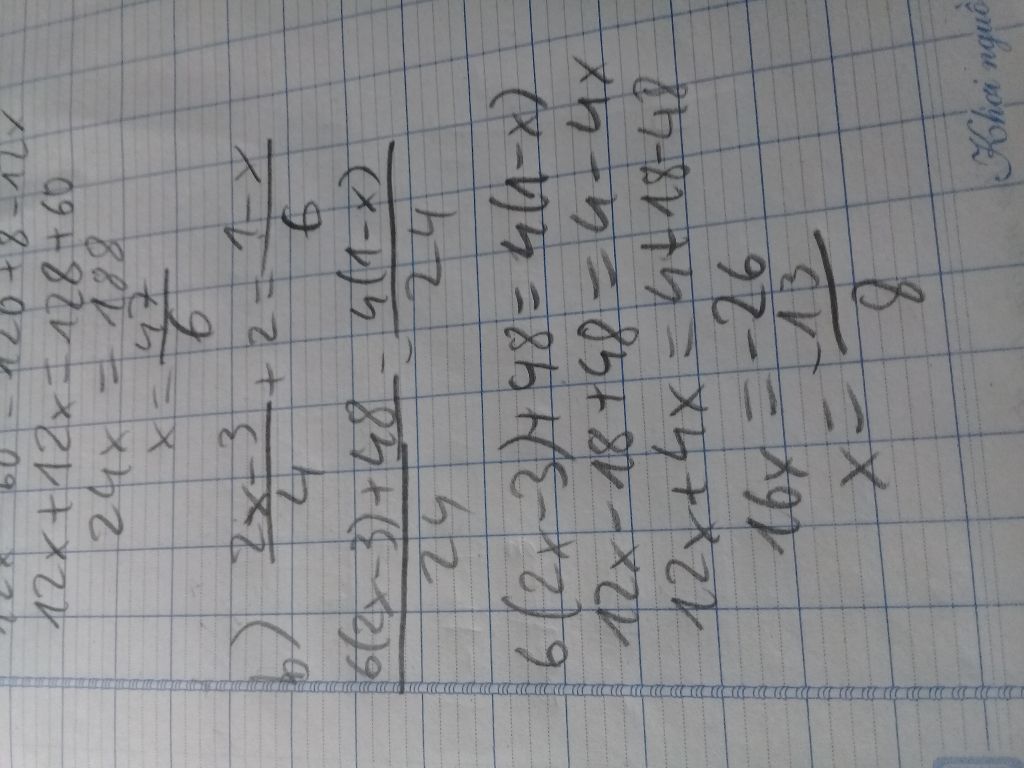 12x + 12x = 128 + 60
24x = 188
x = 47/6
b) 2x-3/4 + 2 = 1-x/6
6(2x-3)+48/24 = 4(1-x)/24
6(2x-3)+48 = 4(1-x)
12x-18+48 = 4-4x
12x+4x = 4+18-48
16x = -26
x = -13/8